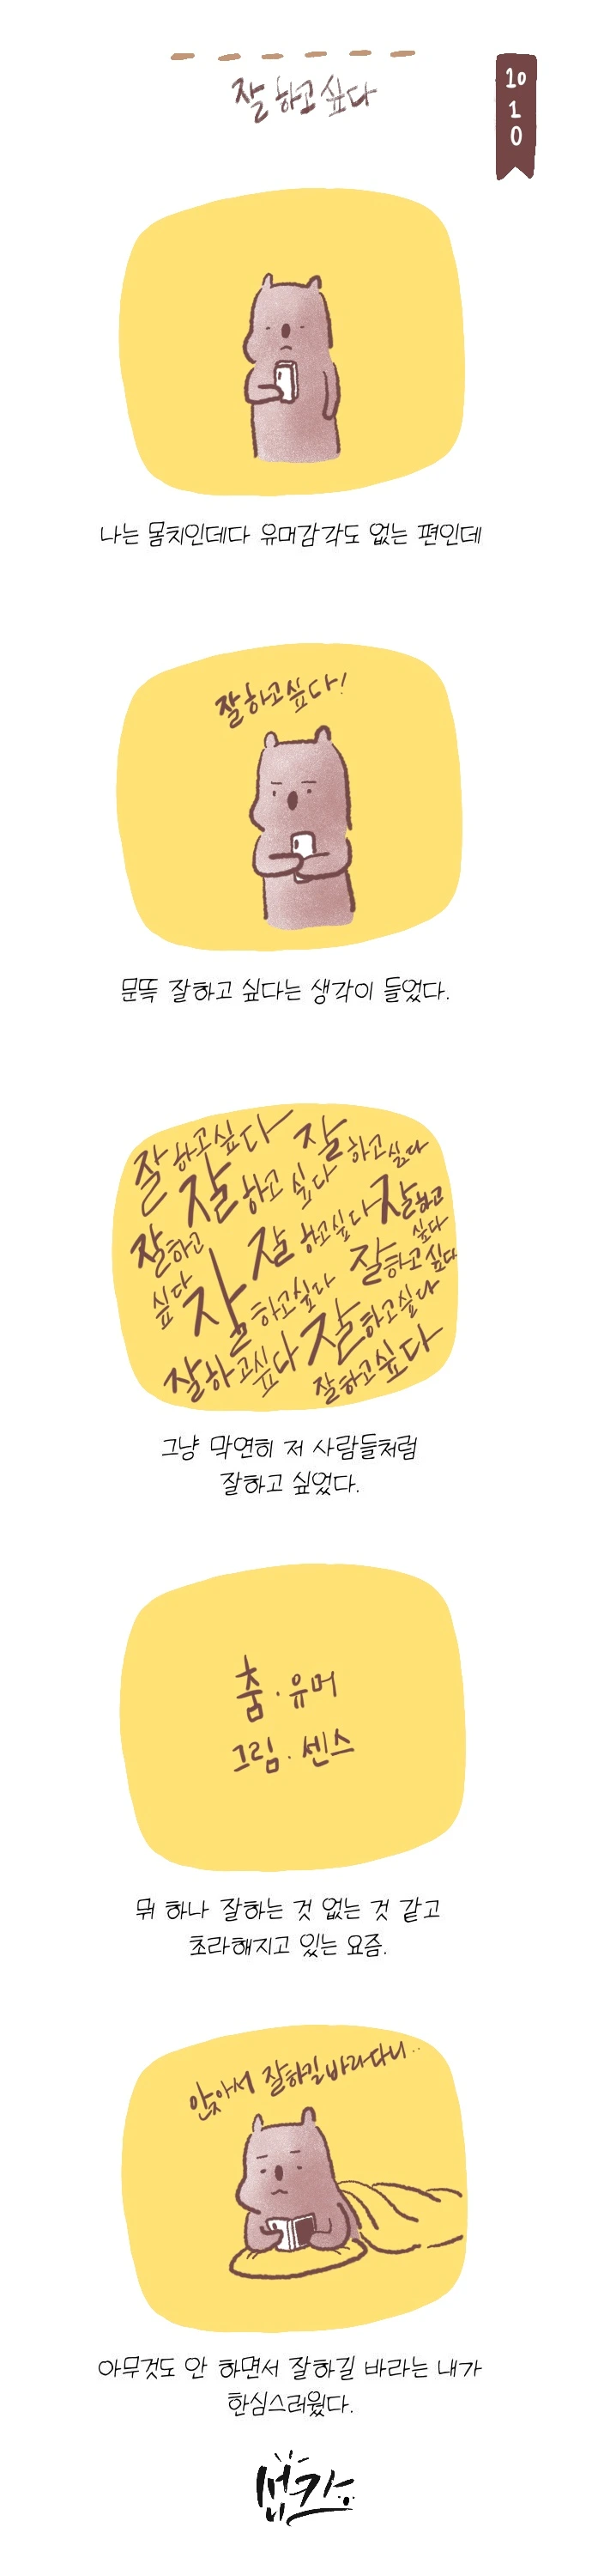 잘하고싶다
10
1
0
나는 몸치인데다 유머감각도 없는 편인데
잘하고싶다!
문뜩 잘하고 싶다는 생각이 들었다.
잘하고싶다
잘하고싶다
잘하고 싶다
잘하고
싶다
잘하고싶다
잘하고
싶다
잘하고싶다
잘하고싶다
잘하고싶다
잘하고싶다
잘하고싶다
그냥 막연히 저 사람들처럼
잘하고 싶었다.
춤·유머
그림·센스
뭐 하나 잘하는 것 없는 것 같고
초라해지고 있는 요즘.
앉아서 잘하길바라다니..
아무것도 안 하면서 잘하길 바라는 내가
한심스러웠다.